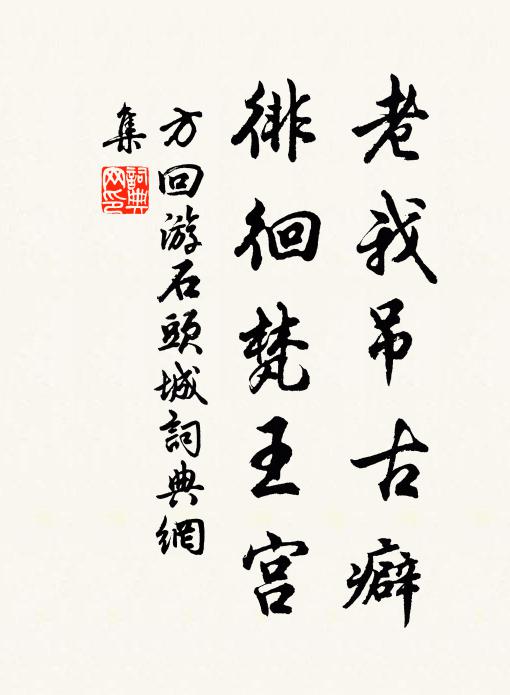 老我吊古癖
徘徊梵王宫
方回游石頭城詞典網
集
詞典网印